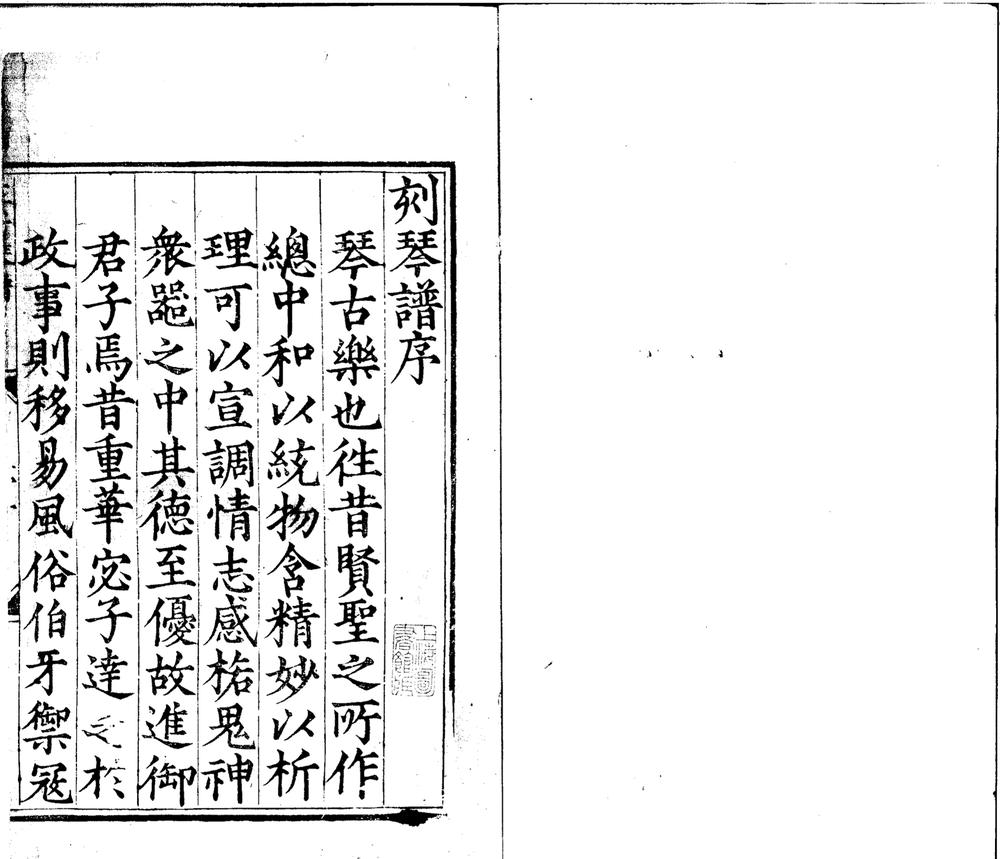 刻琴譜序
琴古樂也徃昔賢聖之所作
總中和以統物含精妙以析
理可以宣調情志感格鬼神
衆噐之中其德至優故進御
君子焉昔重華宓子達之於
政事則移易風俗伯牙禦冦
上海圖書館藏